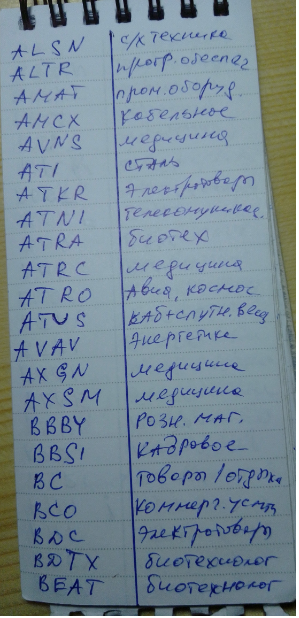 ALSN с/х техника
ALTR прогр. обеспеч
AMAT пром. оборуд.
AMCX кабельное
AVNS медицина
ATI сталь
ATKR электротовары
ATNI телекоммуникац.
ATRA биотех
ATRC медицина
ATRO Авиа, космос
ATUS каб+спутн. вещ
AVAV Энергетика
AXGN медицина
AXSM медицина
BBBY розн. маг.
BBSI кадровое
BC товары/отдыха
BCO коммерч. услуги
BDC электротовары
BDTX биотехнолог
BEAT биотехнолог